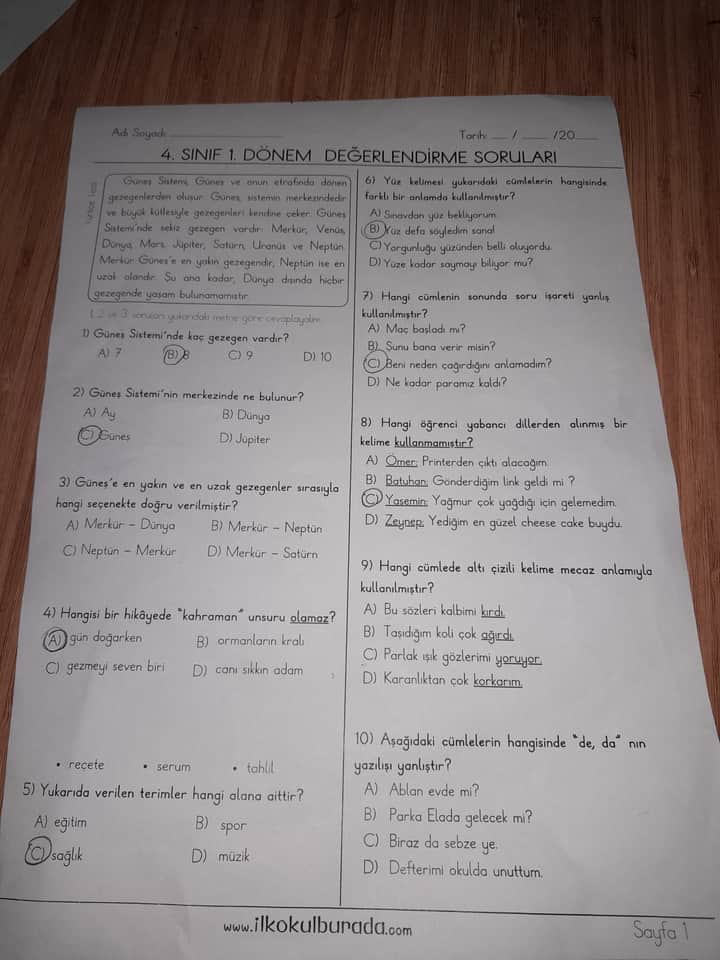 Adı Soyadı: Tarih: __ / __ /20__
4. SINIF 1. DÖNEM DEĞERLENDİRME SORULARI
Güneş Sistemi, Güneş ve onun etrafında dönen
gezegenlerden oluşur. Güneş, sistemin merkezindedir
ve büyük kütlesiyle gezegenleri kendine çeker. Güneş
Sistemi'nde sekiz gezegen vardır: Merkür, Venüs,
Dünya, Mars, Jüpiter, Satürn, Uranüs ve Neptün.
Merkür Güneş'e en yakın gezegendir, Neptün ise en
uzak olandır. Şu ana kadar, Dünya dışında hiçbir
gezegende yaşam bulunamamıştır.
1, 2 ve 3. soruları yukarıdaki metne göre cevaplayalım.
1) Güneş Sistemi'nde kaç gezegen vardır?
A) 7 B) 8 C) 9 D) 10
2) Güneş Sistemi'nin merkezinde ne bulunur?
A) Ay B) Dünya
C) Güneş D) Jüpiter
3) Güneş'e en yakın ve en uzak gezegenler sırasıyla
hangi seçenekte doğru verilmiştir?
A) Merkür - Dünya B) Merkür - Neptün
C) Neptün - Merkür D) Merkür - Satürn
4) Hangisi bir hikâyede "kahraman" unsuru olamaz?
A) gün doğarken B) ormanların kralı
C) gezmeyi seven biri D) canı sıkkın adam
• reçete • serum • tahlil
5) Yukarıda verilen terimler hangi alana aittir?
A) eğitim B) spor
C) sağlık D) müzik
6) Yüz kelimesi yukarıdaki cümlelerin hangisinde
farklı bir anlamda kullanılmıştır?
A) Sınavdan yüz bekliyorum.
B) Yüz defa söyledim sana!
C) Yorgunluğu yüzünden belli oluyordu.
D) Yüze kadar saymayı biliyor mu?
7) Hangi cümlenin sonunda soru işareti yanlış
kullanılmıştır?
A) Maç başladı mı?
B) Şunu bana verir misin?
C) Beni neden çağırdığını anlamadım?
D) Ne kadar paramız kaldı?
8) Hangi öğrenci yabancı dillerden alınmış bir
kelime kullanmamıştır?
A) Ömer: Printerden çıktı alacağım.
B) Batuhan: Gönderdiğim link geldi mi ?
C) Yasemin: Yağmur çok yağdığı için gelemedim.
D) Zeynep: Yediğim en güzel cheese cake buydu.
9) Hangi cümlede altı çizili kelime mecaz anlamıyla
kullanılmıştır?
A) Bu sözleri kalbimi kırdı.
B) Taşıdığım koli çok ağırdı.
C) Parlak ışık gözlerimi yoruyor.
D) Karanlıktan çok korkarım.
10) Aşağıdaki cümlelerin hangisinde "de, da" nın
yazılışı yanlıştır?
A) Ablan evde mi?
B) Parka Elada gelecek mi?
C) Biraz da sebze ye.
D) Defterimi okulda unuttum.
www.ilkokulburada.com
Sayfa 1